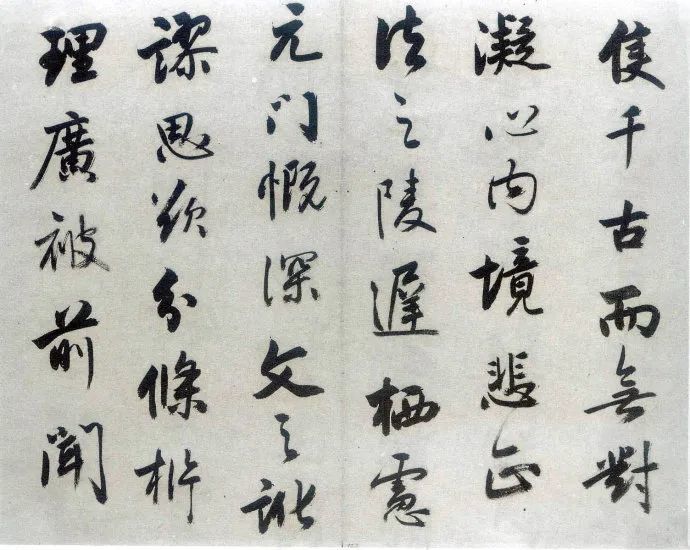 隻千古而無對
凝心內境悲正
法之陵遲栖慮
元门慨深文之訛
謬思欲分條析
理廣被前聞